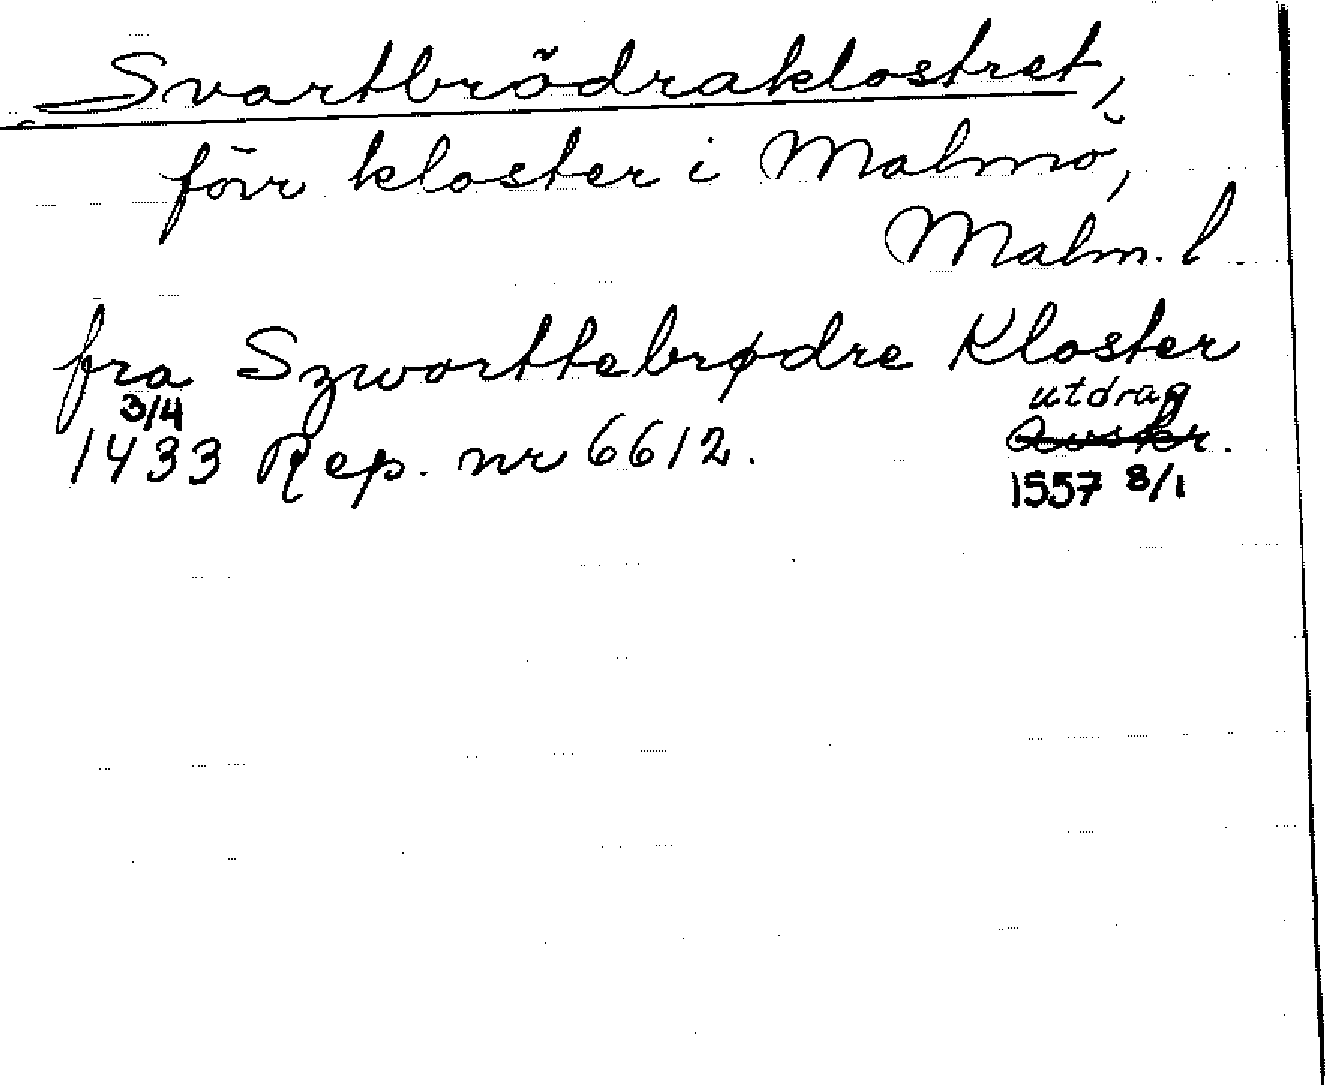 Svartbrödraklostret,
förr kloster i Malmö,
Malm. l
fra Szworttebrødre Kloster
utdrag
3/4
1433 Rep. nr 6612. Avskr.
1557 8/1